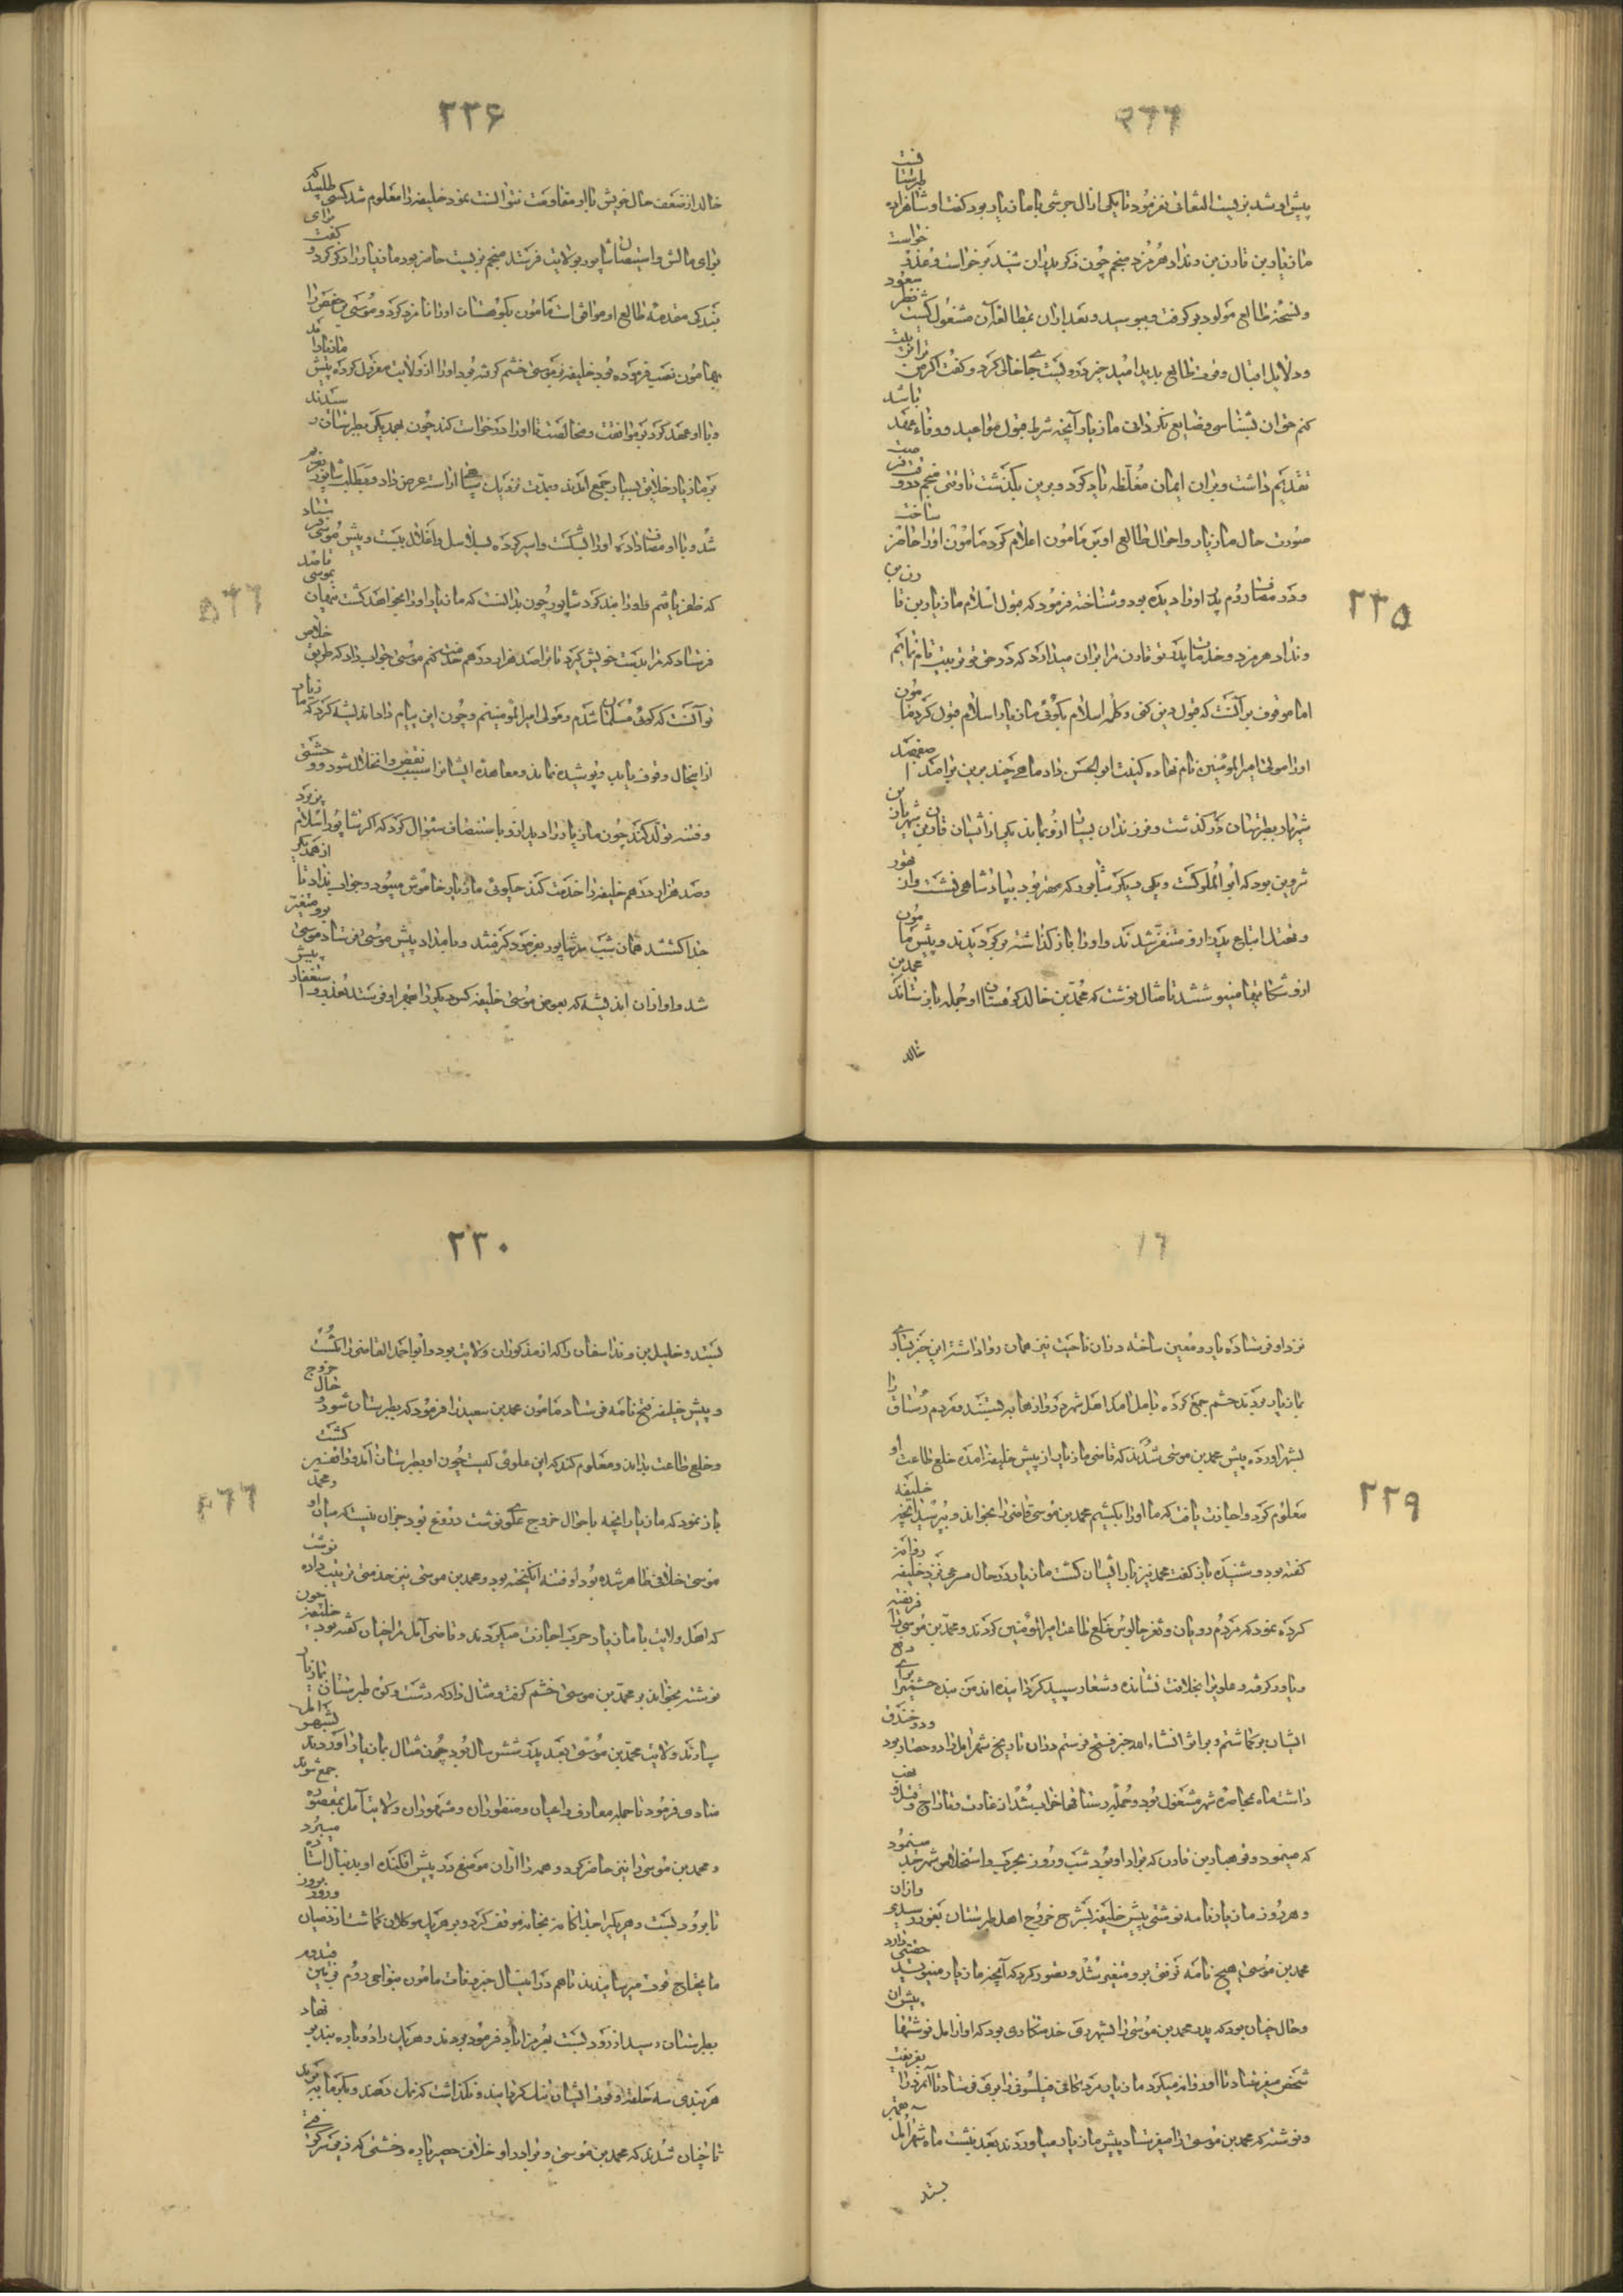 ۲۳۵
پیش او شد بزیست النفاتی نفرمود تا یکی از آل حرشی با مازیار بود گفت او شاهزاده طبرستا
مازیار بن قارن بن ونداد هرمزد منجم چون ذکر پدران شنید بر خواست و عذر خواست
و نسخهٔ طالع مولود بر گرفت و ببوسید و بعد از آن بمطالعهٔ آن مشغول گشت
و دلایل اقبال و قوت طالع بدید امید خیر در و بست جای خالی کرد و گفت اگر من
کنم حق آن بشناسی و ضایع نگردانی مازیار آنچه شرط قبول مواعید و وفاء عهد باشد
تقدیم داشت و بر آن ایمان مغلظه یاد کرد و برین بگذشت تا وقتی منجم در و فرصت
صورت حال مازیار و احوال طالع او بر مأمون اعلام کرد مأمون او را حاضر ساخت
و در مصاف روم پدر او را دیده بود و شناخته فرمود که قبول اسلام مازیار بن قارن بن
ونداد هرمزد و خدمات پدر تو قارن مرا بر آن میدارد که در حق تو تربیت تام نمایم
اما موقوف بر آنست که قبول دین کنی و کلمه اسلام بگوئی مازیار اسلام قبول کرد مأمون
او را مولی امیرالمومنین نام نهاده کنیت ابو الحسن داد ماهی چند برین بر آمد اصفهبد
شهریار بطبرستان در گذشت و فرزندان بسیار از و بماند یکی از ایشان قارن بن شهریار بن
شروین بود که ابو الملوک گشت و یکی دیگر شاپور که مهتر بود بپادشاهی نشست و از تهور
و تهتک اتباع پدر از و متنفر شدند و او را باز گذاشته بر گردیدند و پیش مأمون
از و شکایتها مینوشتند تا مثال نوشت که محمد بن خالد کوهستان او جمله باز ستاند
خالد
۲۳۶
خالد از ضعف حال خویش با او مقاومت نتوانست نمود خلیفه را معلوم شد کسی طلبید که
برای مالش و استیصال شاپور بولایت فرستد منجم بزیست حاضر بود مازیار را ذکر کرد و گفت برای
بندگی مقدمهٔ طالع او موافق است مأمون بکوهستان او را نامزد کرد و موسی بن حفص را
بهامون نصب فرموده بود خلیفه بر موسی خشم گرفته بود او را از ولایت معزول کرده پیش مازیار آمد
و با او عهد کرد بر موافقت و مخالصت تا او را در خواست کند چون بهمدیگر بطبرستان رسیدند
بر مازیار خلایق بسیار جمع آمدند و بمدت نزدیک سپاهی آراسته عرض داد و بطلب شاپور بهم
شد و با او مصاف داده او را بشکست و اسیر کرده بسلاسل و اغلال ببست و پیش موسی فرستاد
که ظفر یافتم و او را بند کرد شاپور چون بدانست که مازیار او را بخواهد کشت نهان قاصد بموسی
فرستاد که مرا بدست خویش گیر تا ترا صد هزار درهم خدمت کنم موسی جواب داد که طریق خلاص
تو آنست که گوئی مسلمان شدم و مولی امیرالمومنینم و چون این پیام داد اندیشه کرد که مازیار
ازین حال وقوف یابد و پوشیده نماند و معاهدهٔ ایشان را سبب نقض و انحلال شود و وحشتی
و فتنه تولد کند چون مازیار را دید از و باستنطاف سئوال کرد که اگر شاپور اسلام پذیرد
و صد هزار درهم خلیفه را خدمت کند چگوئی مازیار خاموش میبود و جواب نداد تا از همدیگر
جدا گشتند همان شب سر شاپور بفرمود گرفتند و بامداد پیش موسی بفرستاد موسی برو متغیر
شد و او از آن اندیشه که بعوض موسی خلیفه کسی دیگر را مهمتر او فرستد بعذر و استغفار پیش
۲۲۹
نزد او فرستاده یار و معین ساخته در آن ناحیت نیز همان روا داشته این خبر بساری
بمازیار بردند حشم جمع کرده بآمل آمد اهل شهر دروازها به بستند و مردم رستاق را
بشهر آورده پیش محمد بن موسی شدند که قاضی مازیار از پیش خلیفه آمده خلع طاعت او
معلوم کرد و اجازت یافت که ما او را بکشیم محمد بن موسی قاضی را بخواند و بپرسید آنچه خلیفه
گفته بود و شنیده باز گفت محمد نیز یار ایشان گشت مازیار در حال مسرعی نزد خلیفه روانه
کرده نمود که مردم رویان و ثغر چالوس خلع طاعت امیرالمومنین کردند و محمد بن موسی را فریفته
و یاور گرفته و علویرا بخلافت نشانده و شعار سپید گردانیده اند من بنده حشم را برای دفع
ایشان بر گماشتم و بر اثر انشاء الله خبر فتح فرستم در آن تاریخ شهر آمل را دو حصار بود و دو خندق
داشت ماه بمحاصره شهر مشغول بود و جمله رستاقها خراب شد از غارت و تاراج و قتل و نهب
که مینمود و قوهیار بن قارن که برادر او بود شب و روز بحرب و استخلاص شهر جد مینمود
و هر روز مازیار نامه نوشتی پیش خلیفه بشرح خروج اهل طبرستان بغور رسید و از آن
محمد بن موسی هیچ نامه نرفتی برو متغیر شد و تصور کرد که آنچه مازیار مینویسد حقیقتی دارد
و حال چنان بود که پدر محمد بن موسی را بشهر ری خدمتکاری بود که او از آمل نوشتها پیش آن
شخص میفرستاد تا او روانه میکرد مازیار مرد بکافی فیلسوفی را بری فرستاد تا آن مرد را بفریفت
و نوشته که محمد بن موسی را میفرستاد پیش مازیار میآوردند بعد نیشت ماه شهر آمل
بستد
۲۳۰
بستد و خلیل بن ونداسفان را که از مذکوران ولایت بود و ابو احمد القاضی را بکشت
و پیش خلیفه فتح نامه فرستاد مأمون محمد بن سعید را فرمود که بطبرستان شود و حال خروج
و خلع طاعت بداند و معلوم کند که این علوی کیست چون او بطبرستان آمد و واقف گشت
باز نمود که مازیار آنچه باحوال خروج علوی نوشت دروغ بود جز آن نیست که میان او و محمد
موسی خلافی ظاهر شده بود او فتنه انگیخته بود و محمد بن موسی نیز خدمتی ترتیب داده نوشت
که اهل ولایت با مازیار حرب اجازت میکردند و قاضی آمل مرا چنان گفته بود چون خلیفه
نوشته بخواند بر محمد بن موسی خشم گرفت و مثال داد که دشت و کوه طبرستان بمازیار
سپارند ولایت محمد بن موسی بعد پدر شش سال بود چون مثال بمازیار آوردند بشهر آمل
منادی فرمود تا جمله معارف و اعیان و منظوران و مشهوران ولایت آمل بمقصوره جمع شوند
و محمد بن موسی را نیز حاضر کرد و همه را از آن موضع در پیش افکنده او بدنبال استاده میبرد
تا برود بست و هر یک را جداگانه بخانه موقف کرد و بر هر یک موکلان گماشت از قصبان و روز بروز
ما یحتاج قوت میرسانیدند تا هم درین سال خبر وفات مأمون بنواحی روم
بطبرستان رسید از رود بست بهرمزاباد فرمود بردند و هر یک را دو پاره بند بر نهاد
هر بندی سه حلقه و قوت ایشان تنک گردانید و نگذاشت که نمک دهند و بگرمابه برند
تا چنان شدند که محمد بن موسی و برادر او خلاف حصیر پاره و خشتی که زیر سر